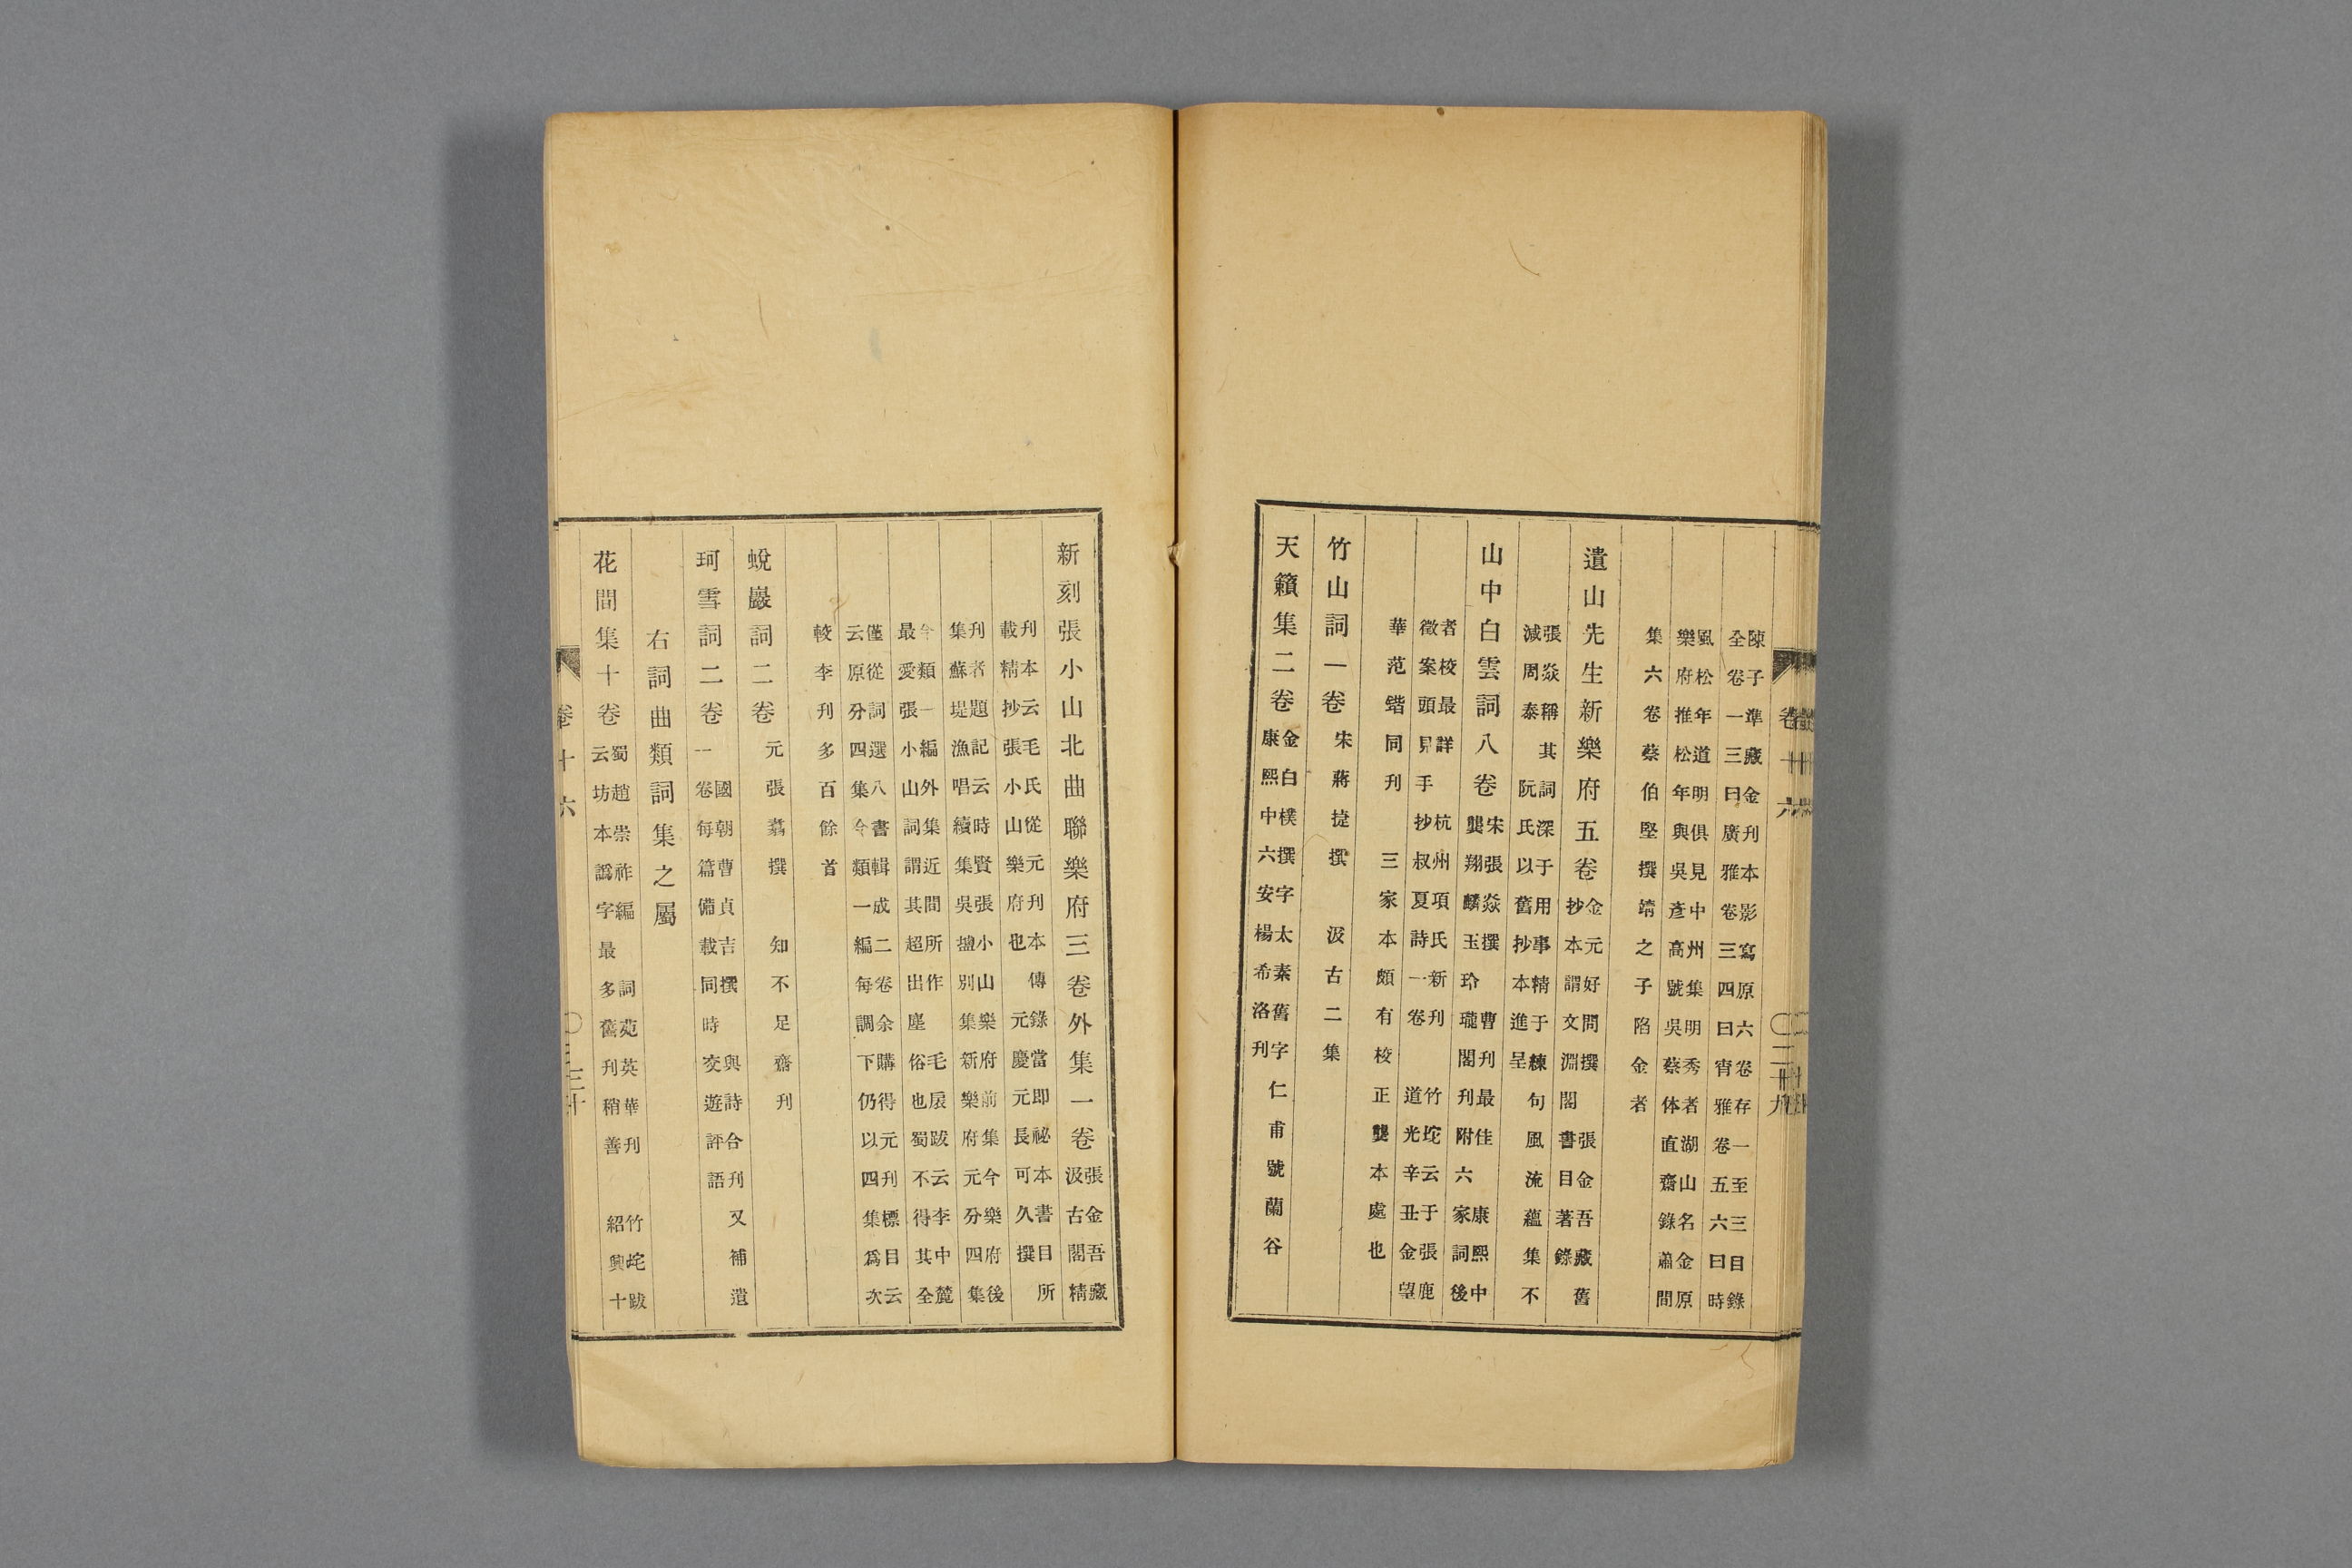 陳子準藏金刊本影寫原六卷存一至三目錄
全卷一三曰廣雅卷三四曰宵雅卷五六曰時
風松年道明俱見中州集明秀者湖山名金原
樂府推松年與吳彥高號吳蔡体直齋錄蕭閒
集六卷蔡伯堅撰靖之子陷金者
遺山先生新樂府五卷
金元好問撰 張金吾藏舊
抄本謂文淵閣書目著錄
張焱稱其詞深于用事精于練句風流蘊集不
減周秦 阮氏以舊抄本進呈
山中白雲詞八卷
宋張焱撰 曹刊最佳 康熙中
龔翔麟玉玲瓏閣刊附六家詞後
者校最詳 杭州項氏新刊 竹垞云于張鹿
徵案頭見手抄叔夏詩一卷 道光辛丑金望
華范鍇同刊 三家本頗有校正龔本處也
竹山詞一卷 宋蔣捷撰 汲古二集
天籟集二卷
金白樸撰字太素舊字仁甫號蘭谷
康熙中六安楊希洛刊
新刻張小山北曲聯樂府三卷外集一卷
張金吾藏
汲古閣精
刊本云毛氏從元刊本傳錄當即祕本書目所
載精抄張小山樂府也 元慶元長可久撰
刊者題記云時賢張小山樂府前集今樂府後
集蘇堤漁唱續集吳鹽別集新樂府元分四集
今類一編外集近間所作 毛扆跋云李中麓
最愛張小山詞謂其超出塵俗也蜀不得其全
僅從詞選八書輯成二卷余購得元刊標目云
云原分四集今類一編每調下仍以四集為次
較李刊多百餘首
蛻巖詞二卷 元張翥撰 知不足齋刊
珂雪詞二卷
國朝曹貞吉撰 與詩合刊又補遺
一卷每篇備載同時交遊評語
右詞曲類詞集之屬
花間集十卷
蜀趙崇祚編 詞苑英華刊 竹垞跋
云坊本譌字最多舊刊稍善 紹興十
卷十六
三十